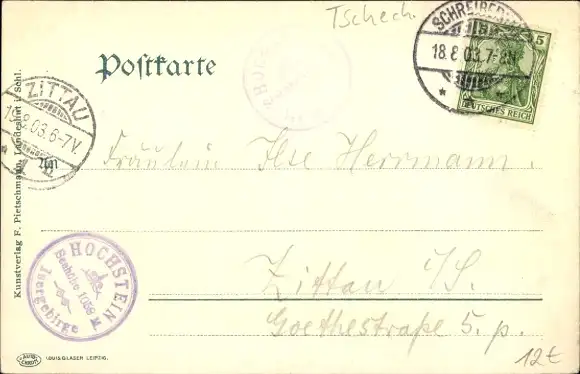 Tschech.
SCHREIBER
18.8.03.7-8
5
DEUTSCHES REICH
Postkarte
ZITTAU
19.8.03.6-7V.
Fräulein Ilse Herrmann.
Zittau i/S.
Goethestraße 5. p.
HOCHSTEIN
Seehöhe 1058 M
Isergebirge
Kunstverlag F. Pietschmann, Landeshut i. Schl.
LOUIS GLASER LEIPZIG.
12€